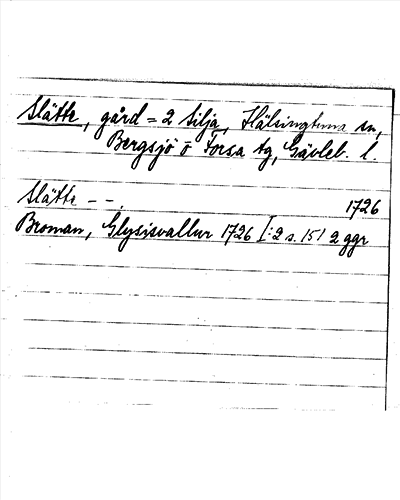 Slätte, gård = 2 Silja, Hälsingtuna sn,
Bergsjö o Forsa tg, Gävleb. l.
Slätte - -. 1726
Broman, Glysisvallur 1726 I:2 s. 151 2 ggr